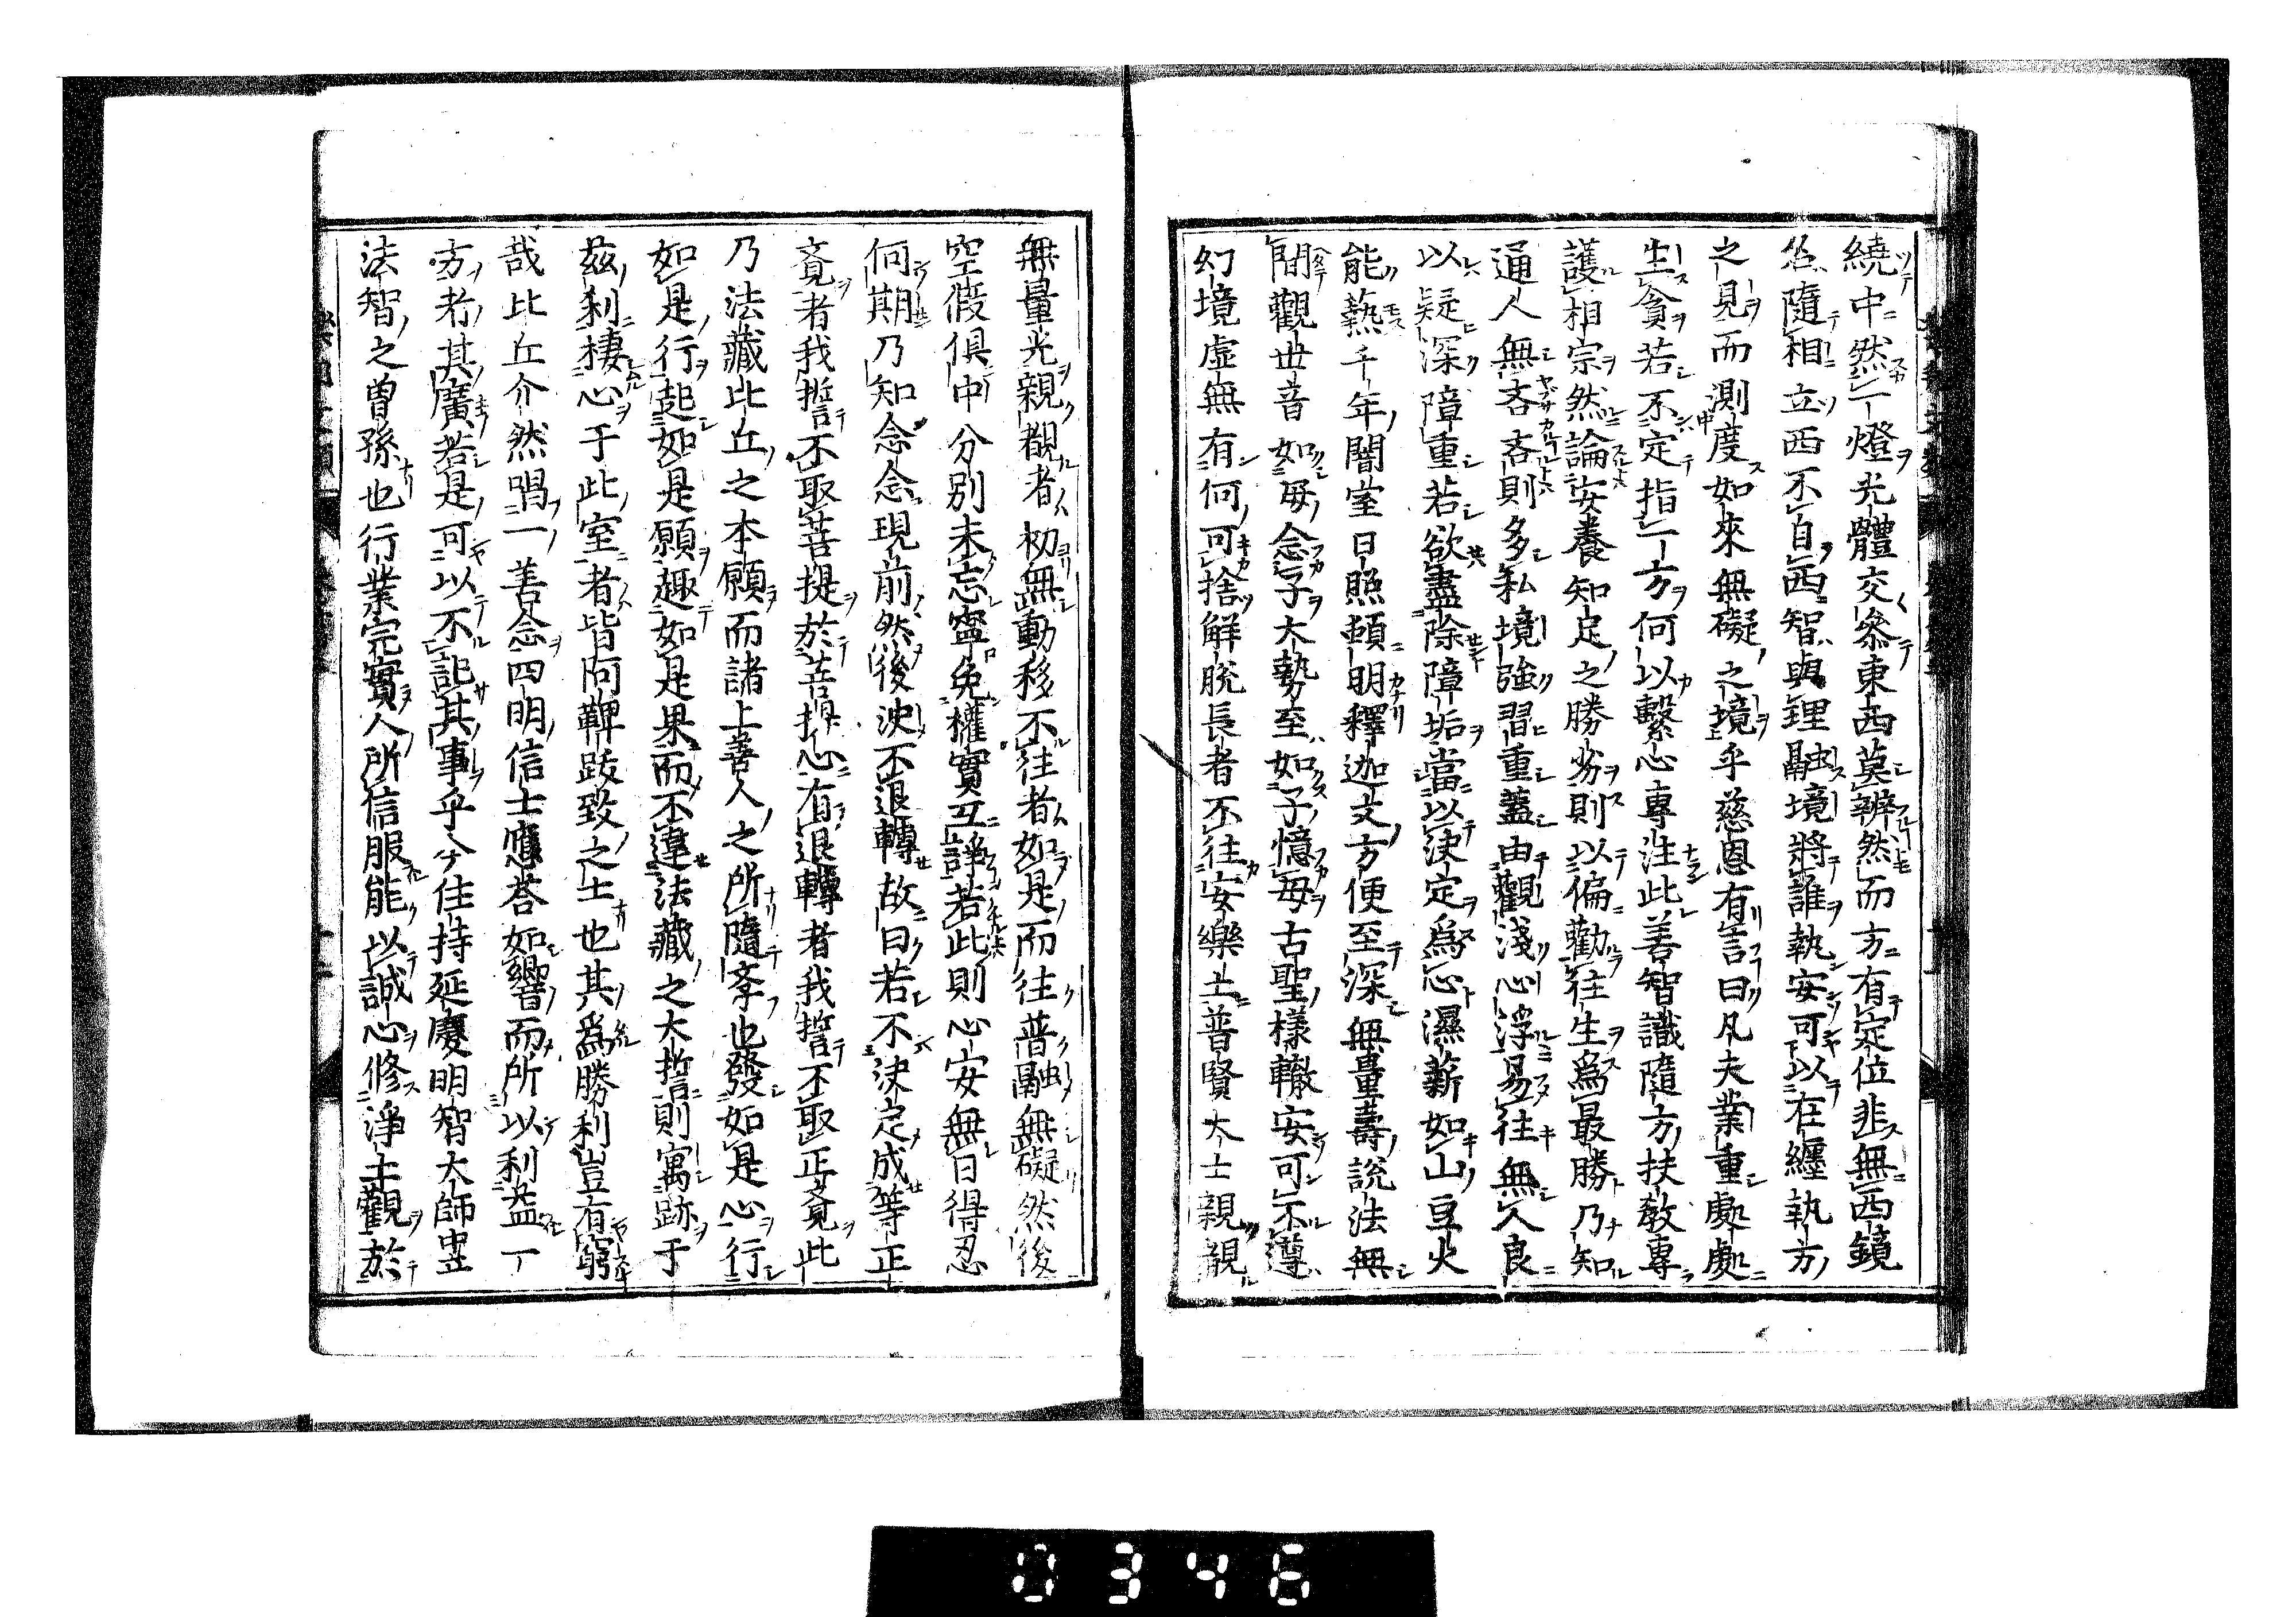 繞中然一燈光體交參東西莫辨然而方有定位非無西鏡
名隨相立西不自西智與理融境將誰執安可以在纏執方
之見而測度如來無礙之境乎慈恩有言曰凡夫業重處處
生貪若不定指一方何以繫心專注此善智識隨方扶教專
護相宗然論安養知足之勝劣則以偏勸往生爲最勝乃知
通人無吝吝則多私境強習重蓋由觀淺心浮易往無人良
以疑深障重若欲盡除障垢當以決定爲心濕薪如山豆火
能熱千年闇室日照頓明釋迦文方便至深無量壽說法無
間觀世音如母念子大勢至如子憶母古聖樣轍安可不遵
幻境虛無有何可捨解脫長者不往安樂土普賢大士親覩
無量光親覩者初無動移不往者如是而往普融無礙然後
空假俱中分別未忘寧免權實互諍若此則心安無日得忍
何期乃知念念現前然後決不退轉故曰若不決定成等正
覺者我誓不取菩提於菩提心有退轉者我誓不取正覺此
乃法藏比丘之本願而諸上善人之所隨奓也發如是心行
如是行起如是願趣如是果而不違法藏之大誓則寓跡于
茲剎棲心于此室者皆阿鞞跋致之士也其爲勝利豈有窮
哉比丘介然唱一善念四明信士應荅如響而所以利益一
方者其廣若是可以不記其事乎今住持延慶明智大師忠
法智之曽孫也行業完實人所信服能以誠心修淨土觀於
0346